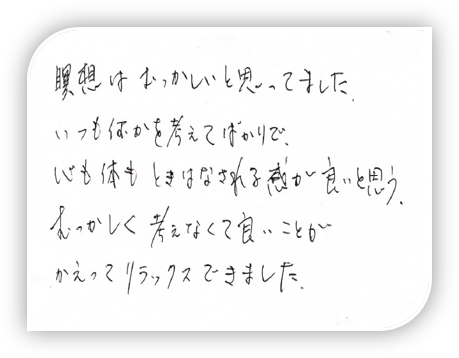 瞑想はむつかしいと思ってました。
いつも何かを考えてばかりで、
心も体もときはなされる感が良いと思う。
むつかしく考えなくて良いことが
かえってリラックスできました。